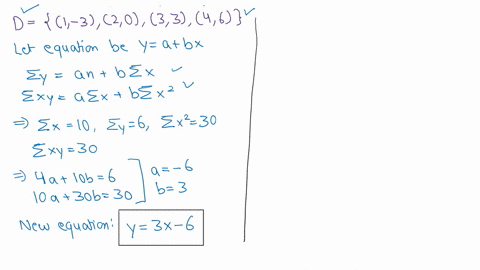 D = {(1,-3),(2,0),(3,3),(4,6)}
Let equation be y=a+bx
Σy = an + bΣx
Σxy = aΣx + bΣx²
⇒ Σx = 10, Σy=6, Σx²=30
Σxy = 30
⇒ 4a+10b=6
10a+30b=30
a=-6
b=3
New equation: y=3x-6